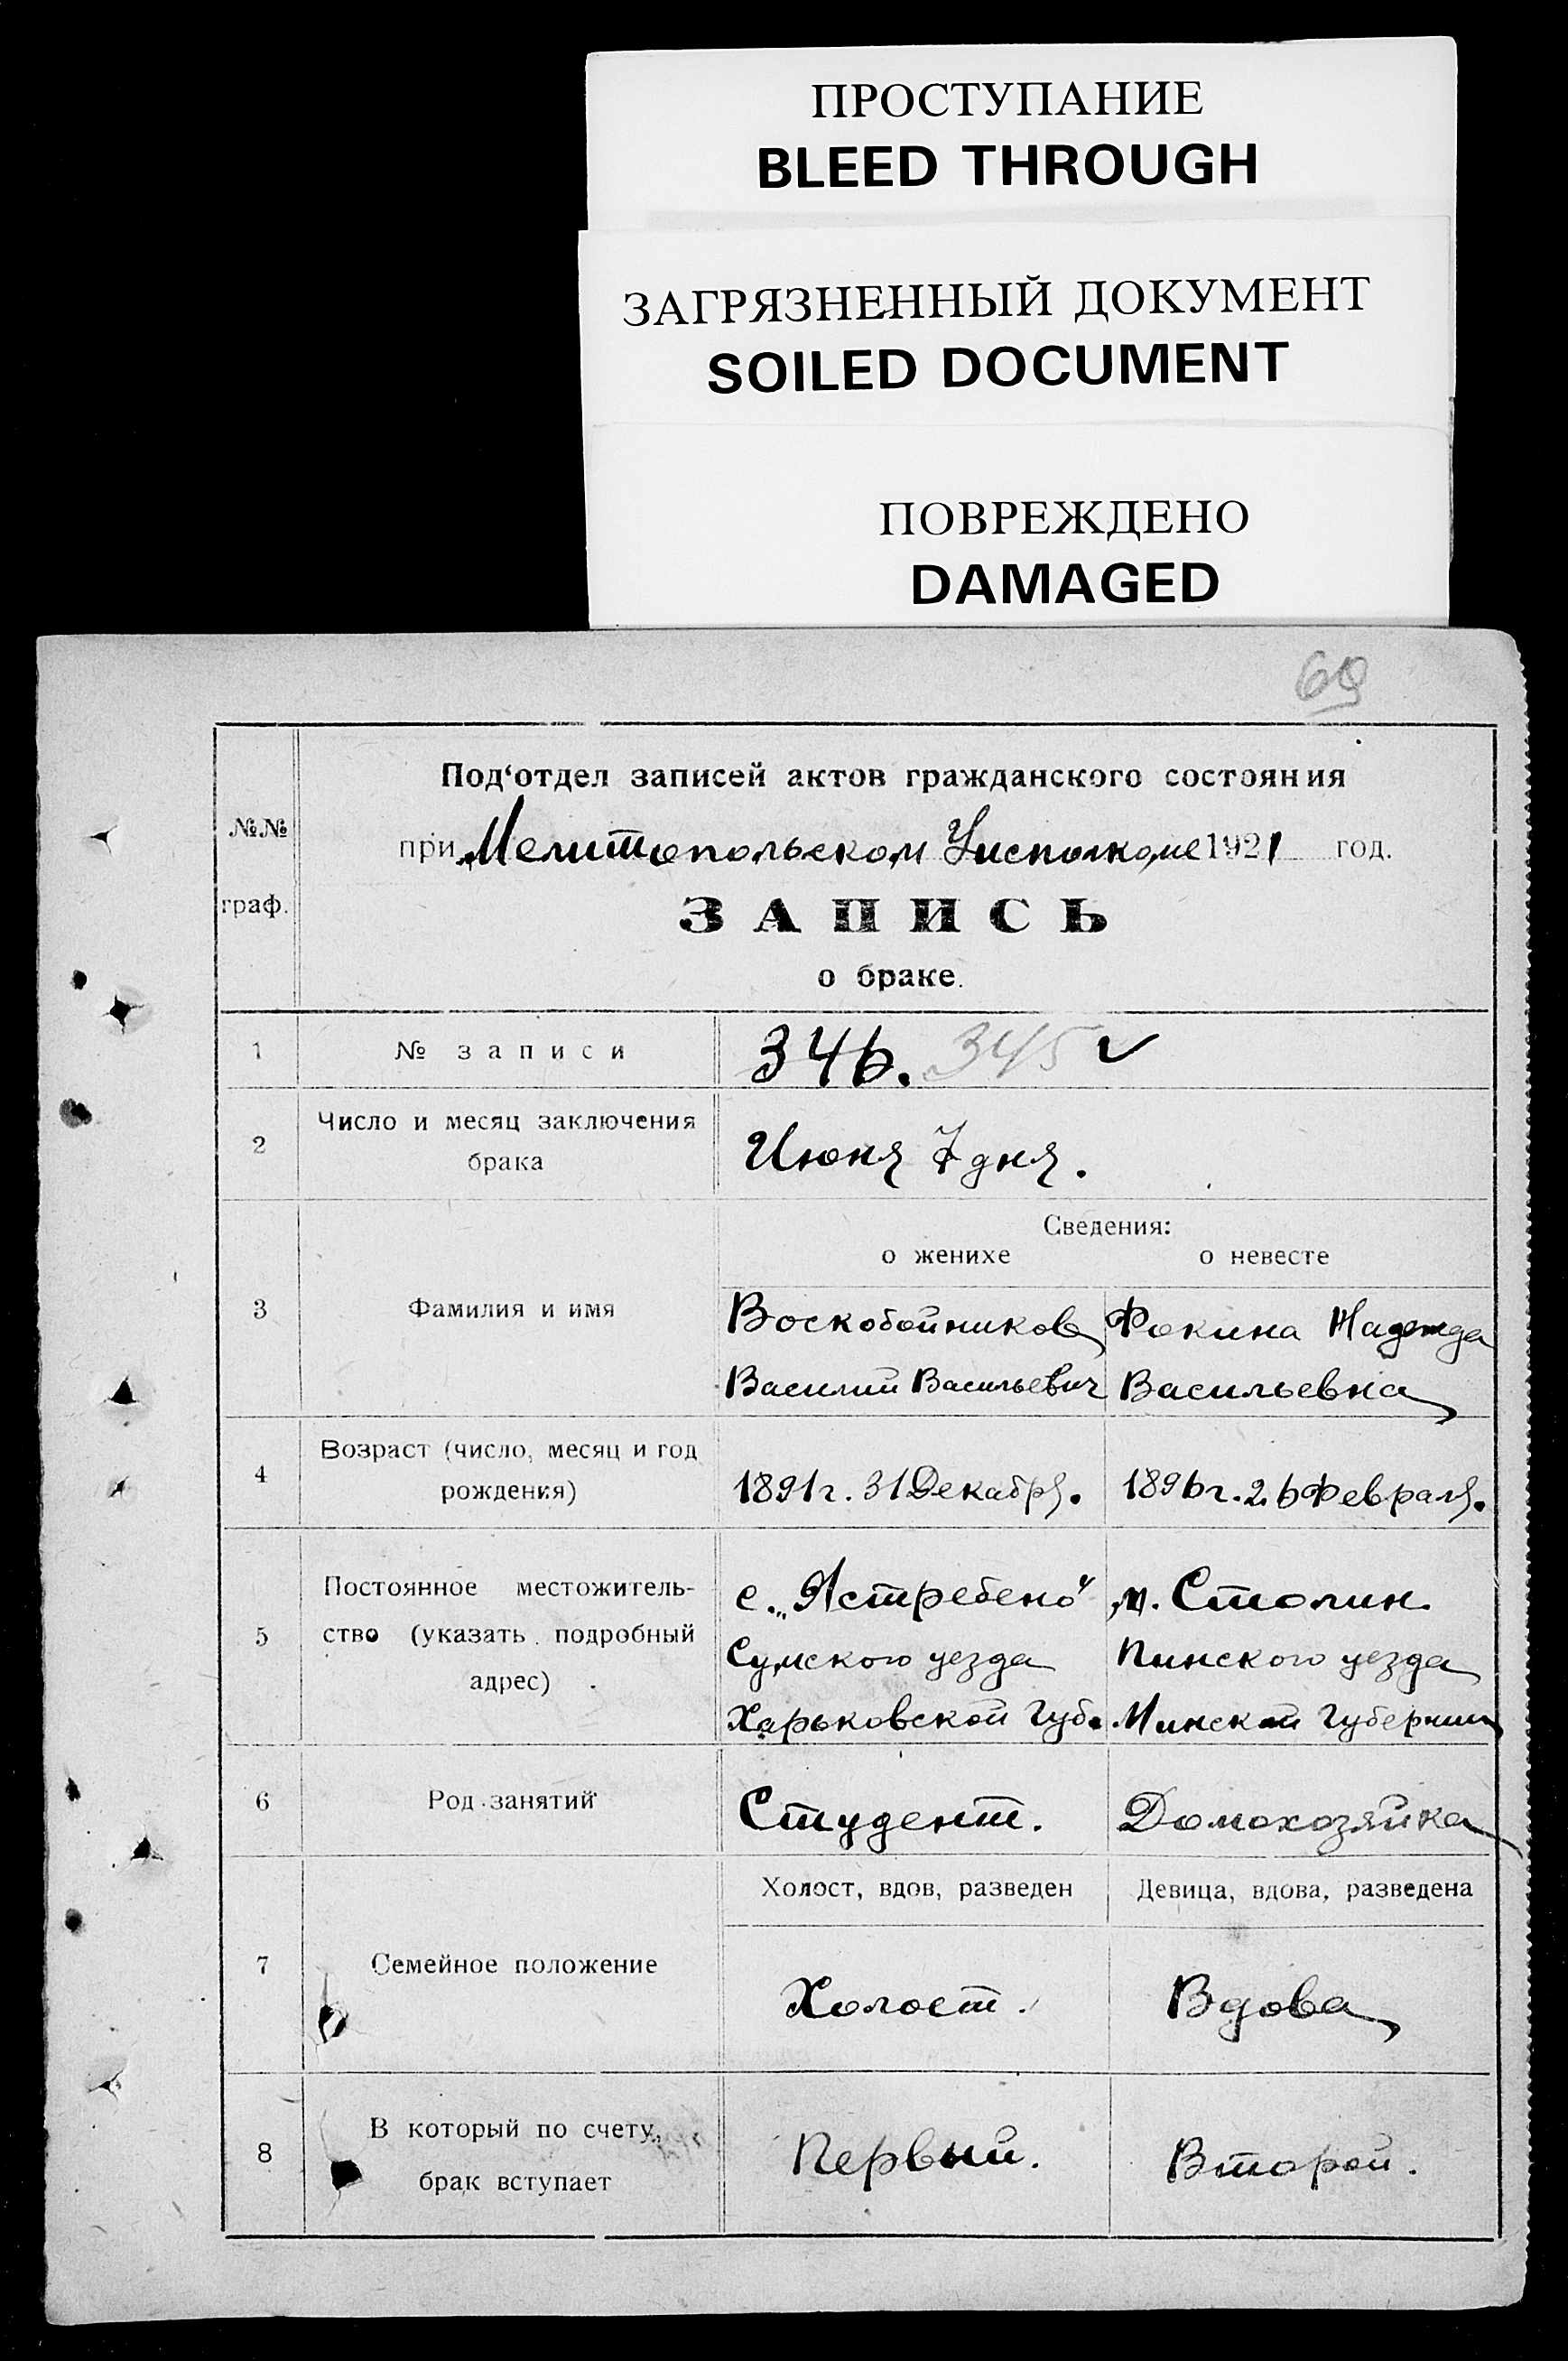 ПРОСТУПАНИЕ
BLEED THROUGH
ЗАГРЯЗНЕННЫЙ ДОКУМЕНТ
SOILED DOCUMENT
ПОВРЕЖДЕНО
DAMAGED
69
Под‘отдел записей актов гражданского состояния
№№ граф.
при Мелитопольском Уисполкоме 1921 год.
ЗАПИСЬ
о браке.
1 № записи 346. 345 ✓
2 Число и месяц заключения
брака
Июня 7 дня.
Сведения:
о женихе о невесте
3 Фамилия и имя
Воскобойников Фокина Надежда
Василий Васильевич Васильевна
4 Возраст (число, месяц и год
рождения)
1891г. 31 Декабря. 1896г. 26 Февраля.
5 Постоянное местожитель-
ство (указать подробный
адрес)
с. „Ястребено“ м. Столин.
Сумского уезда Пинского уезда
Харьковской Губ. Минской Губернии
6 Род занятий Студент. Домохозяйка
Холост, вдов, разведен Девица, вдова, разведена
7 Семейное положение Холост. Вдова
8 В который по счету
брак вступает
Первый. Второй.